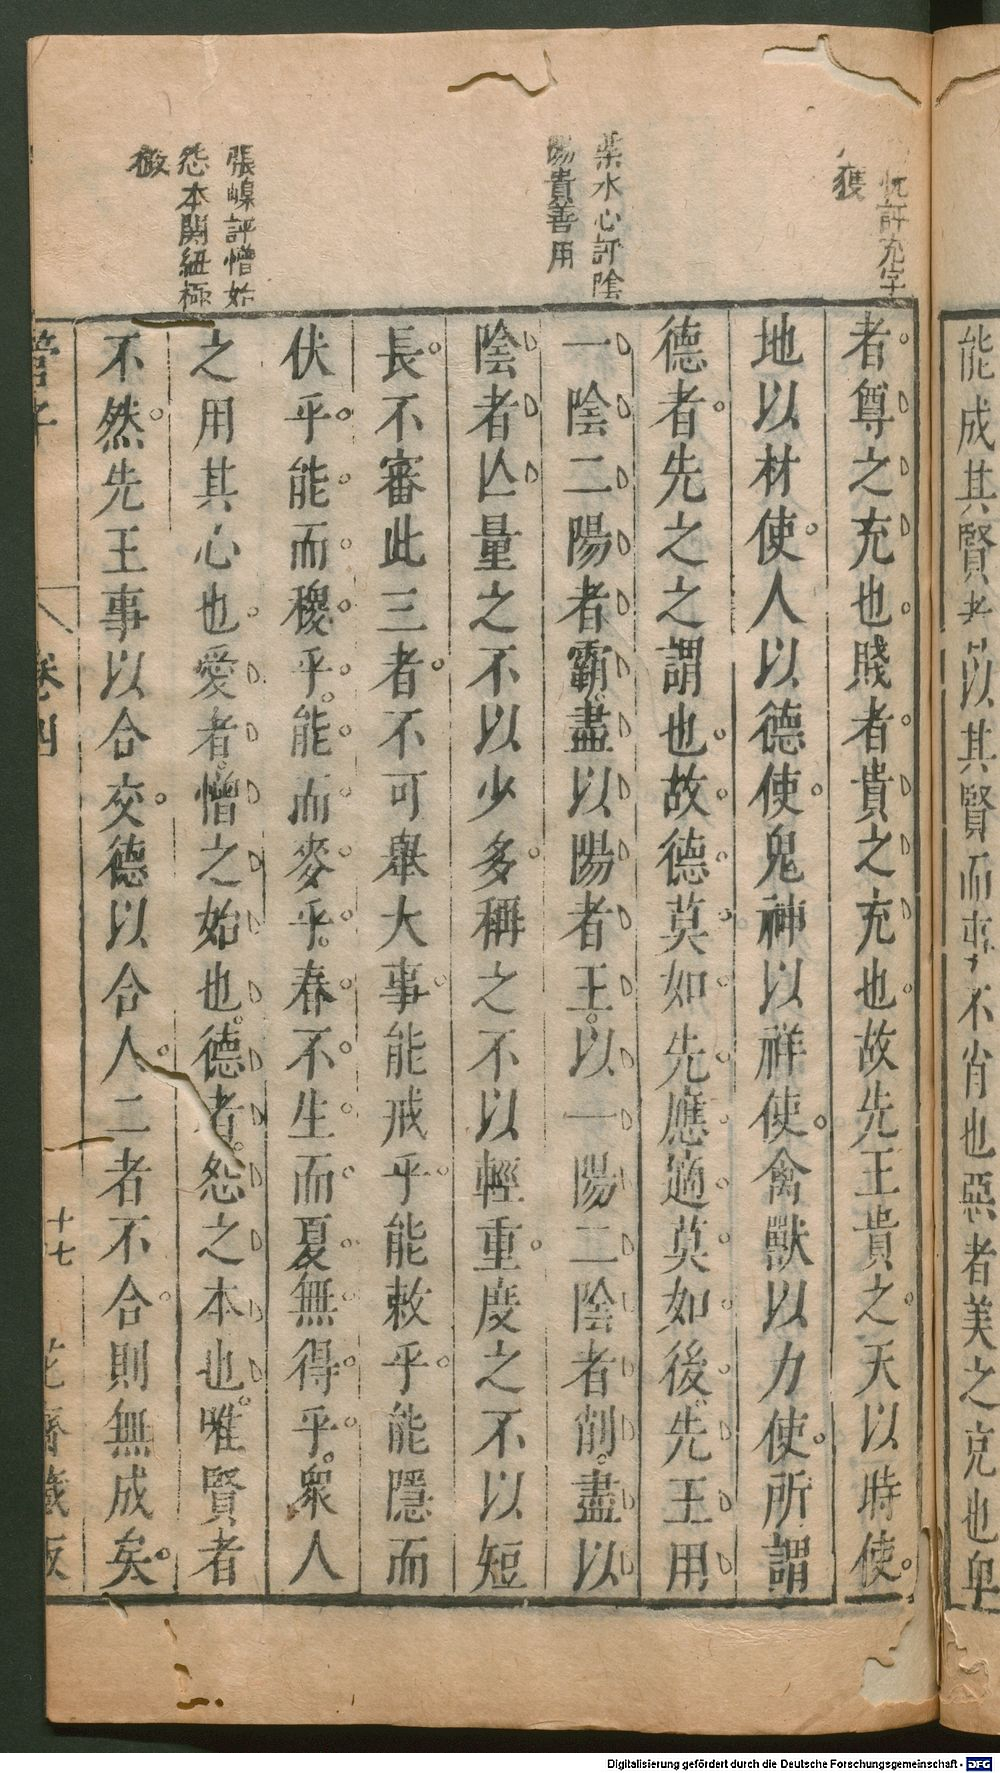 能成其賢者
其賢而
不肖也惡者美之充也卑
評充字
獲
者尊之充也賤者貴之充也故先王貴之天以時使
地以材使人以德使鬼神以祥使禽獸以力使所謂
德者先之之謂也故德莫如先應適莫如後先王用
葉水心評陰
陽貴善用
一陰二陽者霸盡以陽者王以一陽二陰者削盡以
陰者亾量之不以少多稱之不以輕重度之不以短
長不審此三者不可舉大事能戒乎能敕乎能隱而
伏乎能而稷乎能而麥乎春不生而夏無得乎衆人
張嵲評憎始
怨本関紐極
微
之用其心也愛者憎之始也德者怨之本也唯賢者
不然先王事以合交德以合人二者不合則無成矣
管子
卷四
十七
花齋藏板
Digitalisierung gefördert durch die Deutsche Forschungsgemeinschaft - DFG